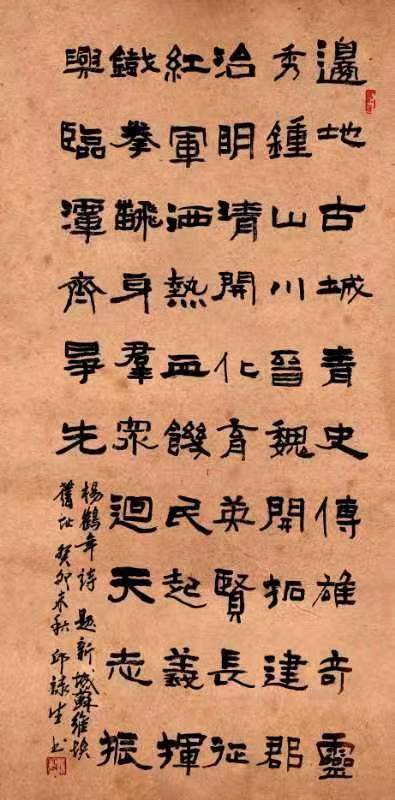 邊地古城青史傳雄奇靈
秀鍾山川晉魏開拓建郡
治明清開化育英賢長征
紅軍洒熱血饑民起義揮
鐵拳飜身羣眾迴天志振
興臨潭齊爭先
楊鶴年詩 題新城蘇維埃
舊址 癸卯末秋 邱祿生书